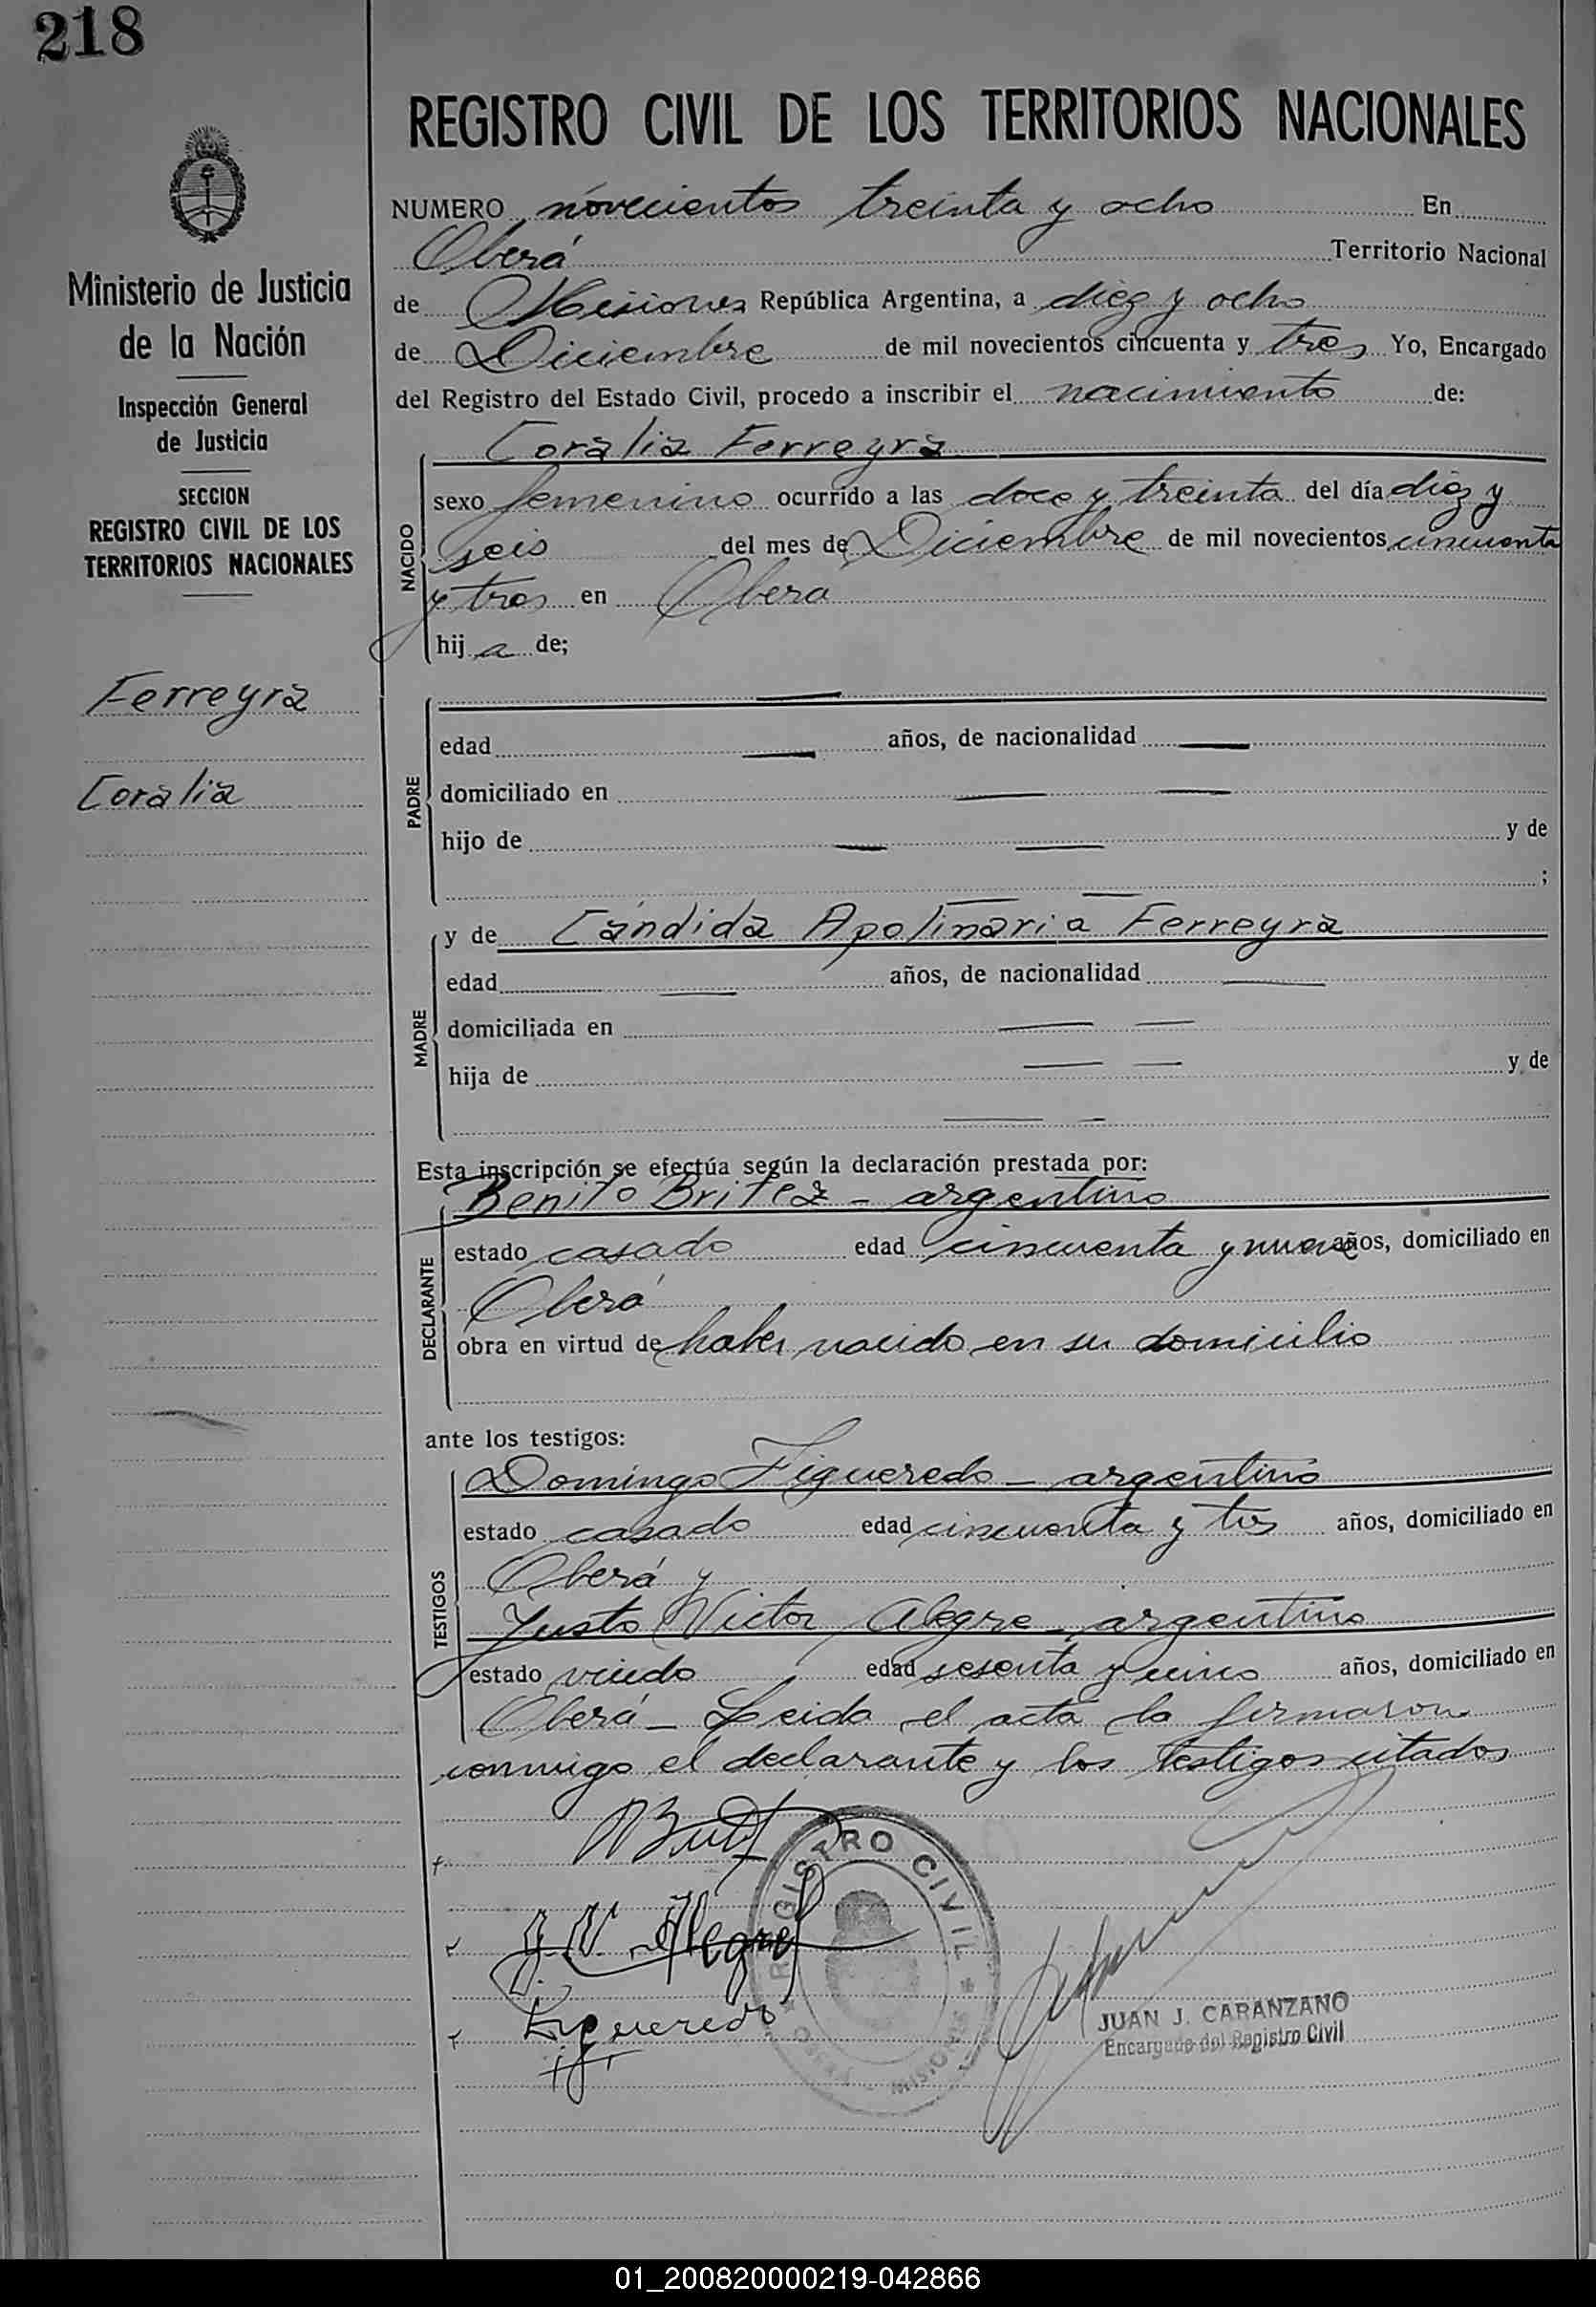 218
REGISTRO CIVIL DE LOS TERRITORIOS NACIONALES
Ministerio de Justicia
de la Nación
Inspección General
de Justicia
SECCION
REGISTRO CIVIL DE LOS
TERRITORIOS NACIONALES
Ferreyra
Coralia
NUMERO novecientos treinta y ocho En
Oberá Territorio Nacional
de Misiones República Argentina, a diez y ocho
de Diciembre de mil novecientos cincuenta y tres Yo, Encargado
del Registro del Estado Civil, procedo a inscribir el nacimiento de:
Coralia Ferreyra
NACIDO
sexo femenino ocurrido a las doce y treinta del día diez y
seis del mes de Diciembre de mil novecientos cincuenta
y tres en Obera
hij a de;
PADRE
edad años, de nacionalidad
domiciliado en
hijo de y de
;
MADRE
y de Cándida Apolinaria Ferreyra
edad años, de nacionalidad
domiciliada en
hija de y de
Esta inscripción se efectúa según la declaración prestada por:
Benito Britez - argentino
DECLARANTE
estado casado edad cincuenta y nueve años, domiciliado en
Oberá
obra en virtud de haber nacido en su domicilio
ante los testigos:
TESTIGOS
Domingo Figueredo - argentino
estado casado edad cincuenta y tres años, domiciliado en
Oberá y
Justo Victor Alegre - argentino
estado viudo edad sesenta y cinco años, domiciliado en
Oberá - Leida el acta la firmaron
conmigo el declarante y los testigos citados
REGISTRO CIVIL
OBERA - MISIONES
J. V. Alegre
Figueredo
JUAN J. CARANZANO
Encargado del Registro Civil
01_200820000219-042866